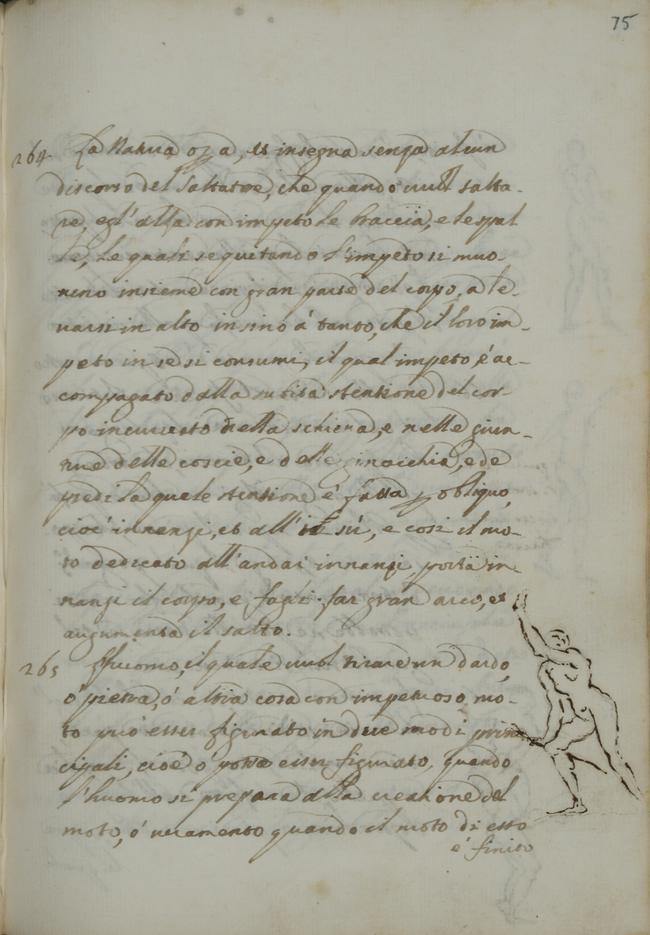 75
264 La Natura opra, et insegna senza alcun
discorso del saltatore, che quando vuol salta-
re, egl'alza con impeto le braccia, e le spal
le, le quali seguitando l'impeto si muo-
veno insieme con gran parte del corpo, a le-
varsi in alto insino á tanto, che il loro im-
peto in se si consumi, il qual impeto, é ac-
compagato dalla subita stensione del cor-
po incurvato nella schiena, e nelle giun-
ture delle coscie, e delle ginocchia, e de
piedi la quale stensione é fatta p obliquo,
cioé innanzi, et all' in sú, e cosi il mo-
to dedicato all'andar innanzi porta in-
nanzi il corpo, e fagli far gran arco, et
augumenta il salto.
265 Huomo, il quale vuol tirare un dardo,
ó pietra, ó altra cosa con impetuoso mo-
to puó esser figurato in due modi prin
cipali, cioé ó potra esser figurato, quando
l'huomo si prepara alla creazione del
moto, ó veramento quando il moto di esso
é finito